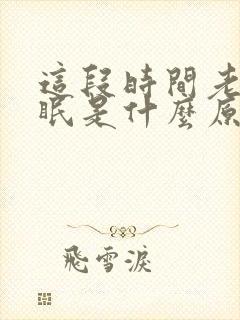 這段時間老
眠是什麼原
飛雪淚